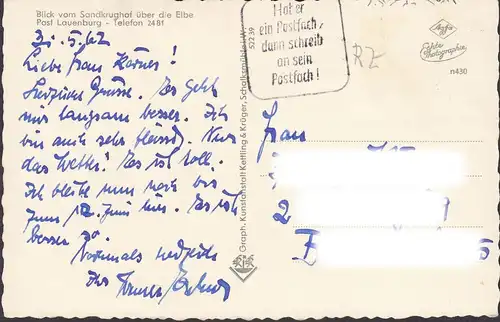 Blick vom Sandkrughof über die Elbe
Post Lauenburg - Telefon 2481
31.5.62
Liebe Frau Körner!
Herzliche Grüsse. Es geht
nur langsam besser. Ich
bin auch sehr fleissig. Nur
das Wetter! Es ist toll.
Ich bleibe nun noch bis
zum 12. Juni hier. Es ist
besser so.
Nochmals herzliche
Ihre
Hat er
ein Postfach,
dann schreib
an sein
Postfach!
RZ
Agfa
Echte
Photographie
n430
522 39
Graph. Kunstanstalt Kettling & Krüger, Schalksmühle i.W.
Frau
2